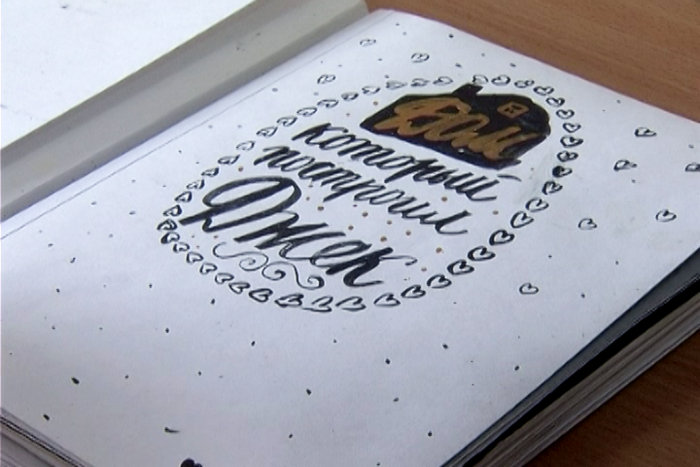 Дом
который
построил
Джек